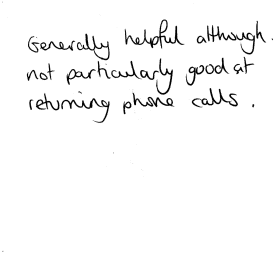 Generally helpful although.
not particularly good at
returning phone calls.